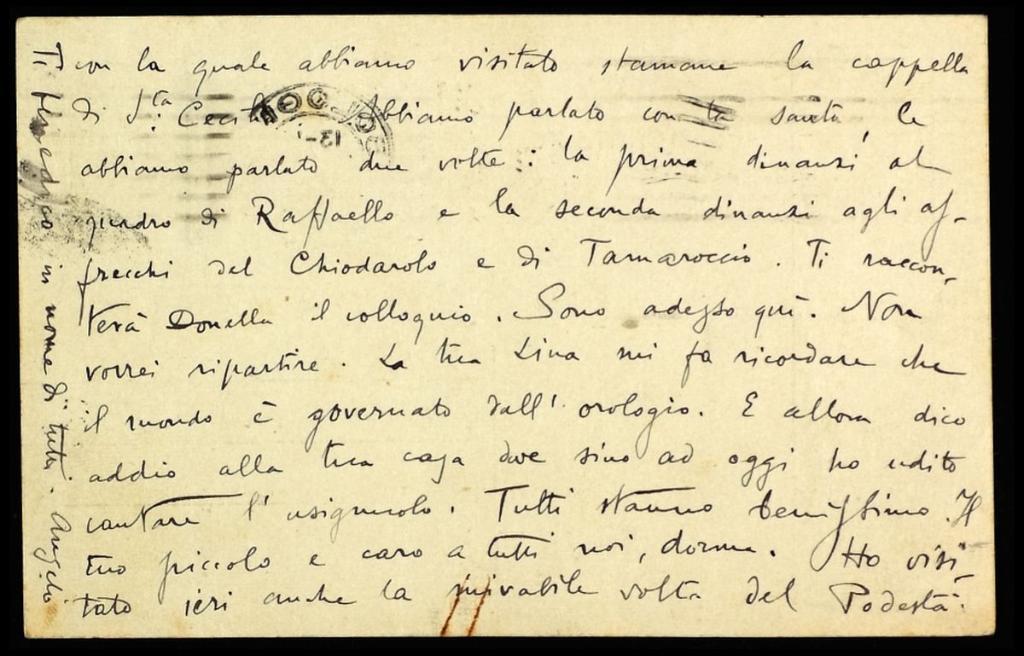 con la quale abbiamo visitato stamane la cappella
di S.ta Cecilia. Abbiamo parlato con la santa, le
abbiamo parlato due volte: la prima dinanzi al
quadro di Raffaello e la seconda dinanzi agli af-
freschi del Chiodarolo e di Tamaroccio. Ti raccon-
terà Donella il colloquio. Sono adesso qui. Non
vorrei ripartire. La tua Lina mi fa ricordare che
il mondo è governato dall'orologio. E allora dico
addio alla tua casa dove sino ad oggi ho udito
cantare l'usignuolo. Tutti stanno benissimo. Il
tuo piccolo e caro a tutti noi, dorme. Ho visi-
tato ieri anche la mirabile volta del Podestà.
Ti in nome di tutti. Angelo
13-